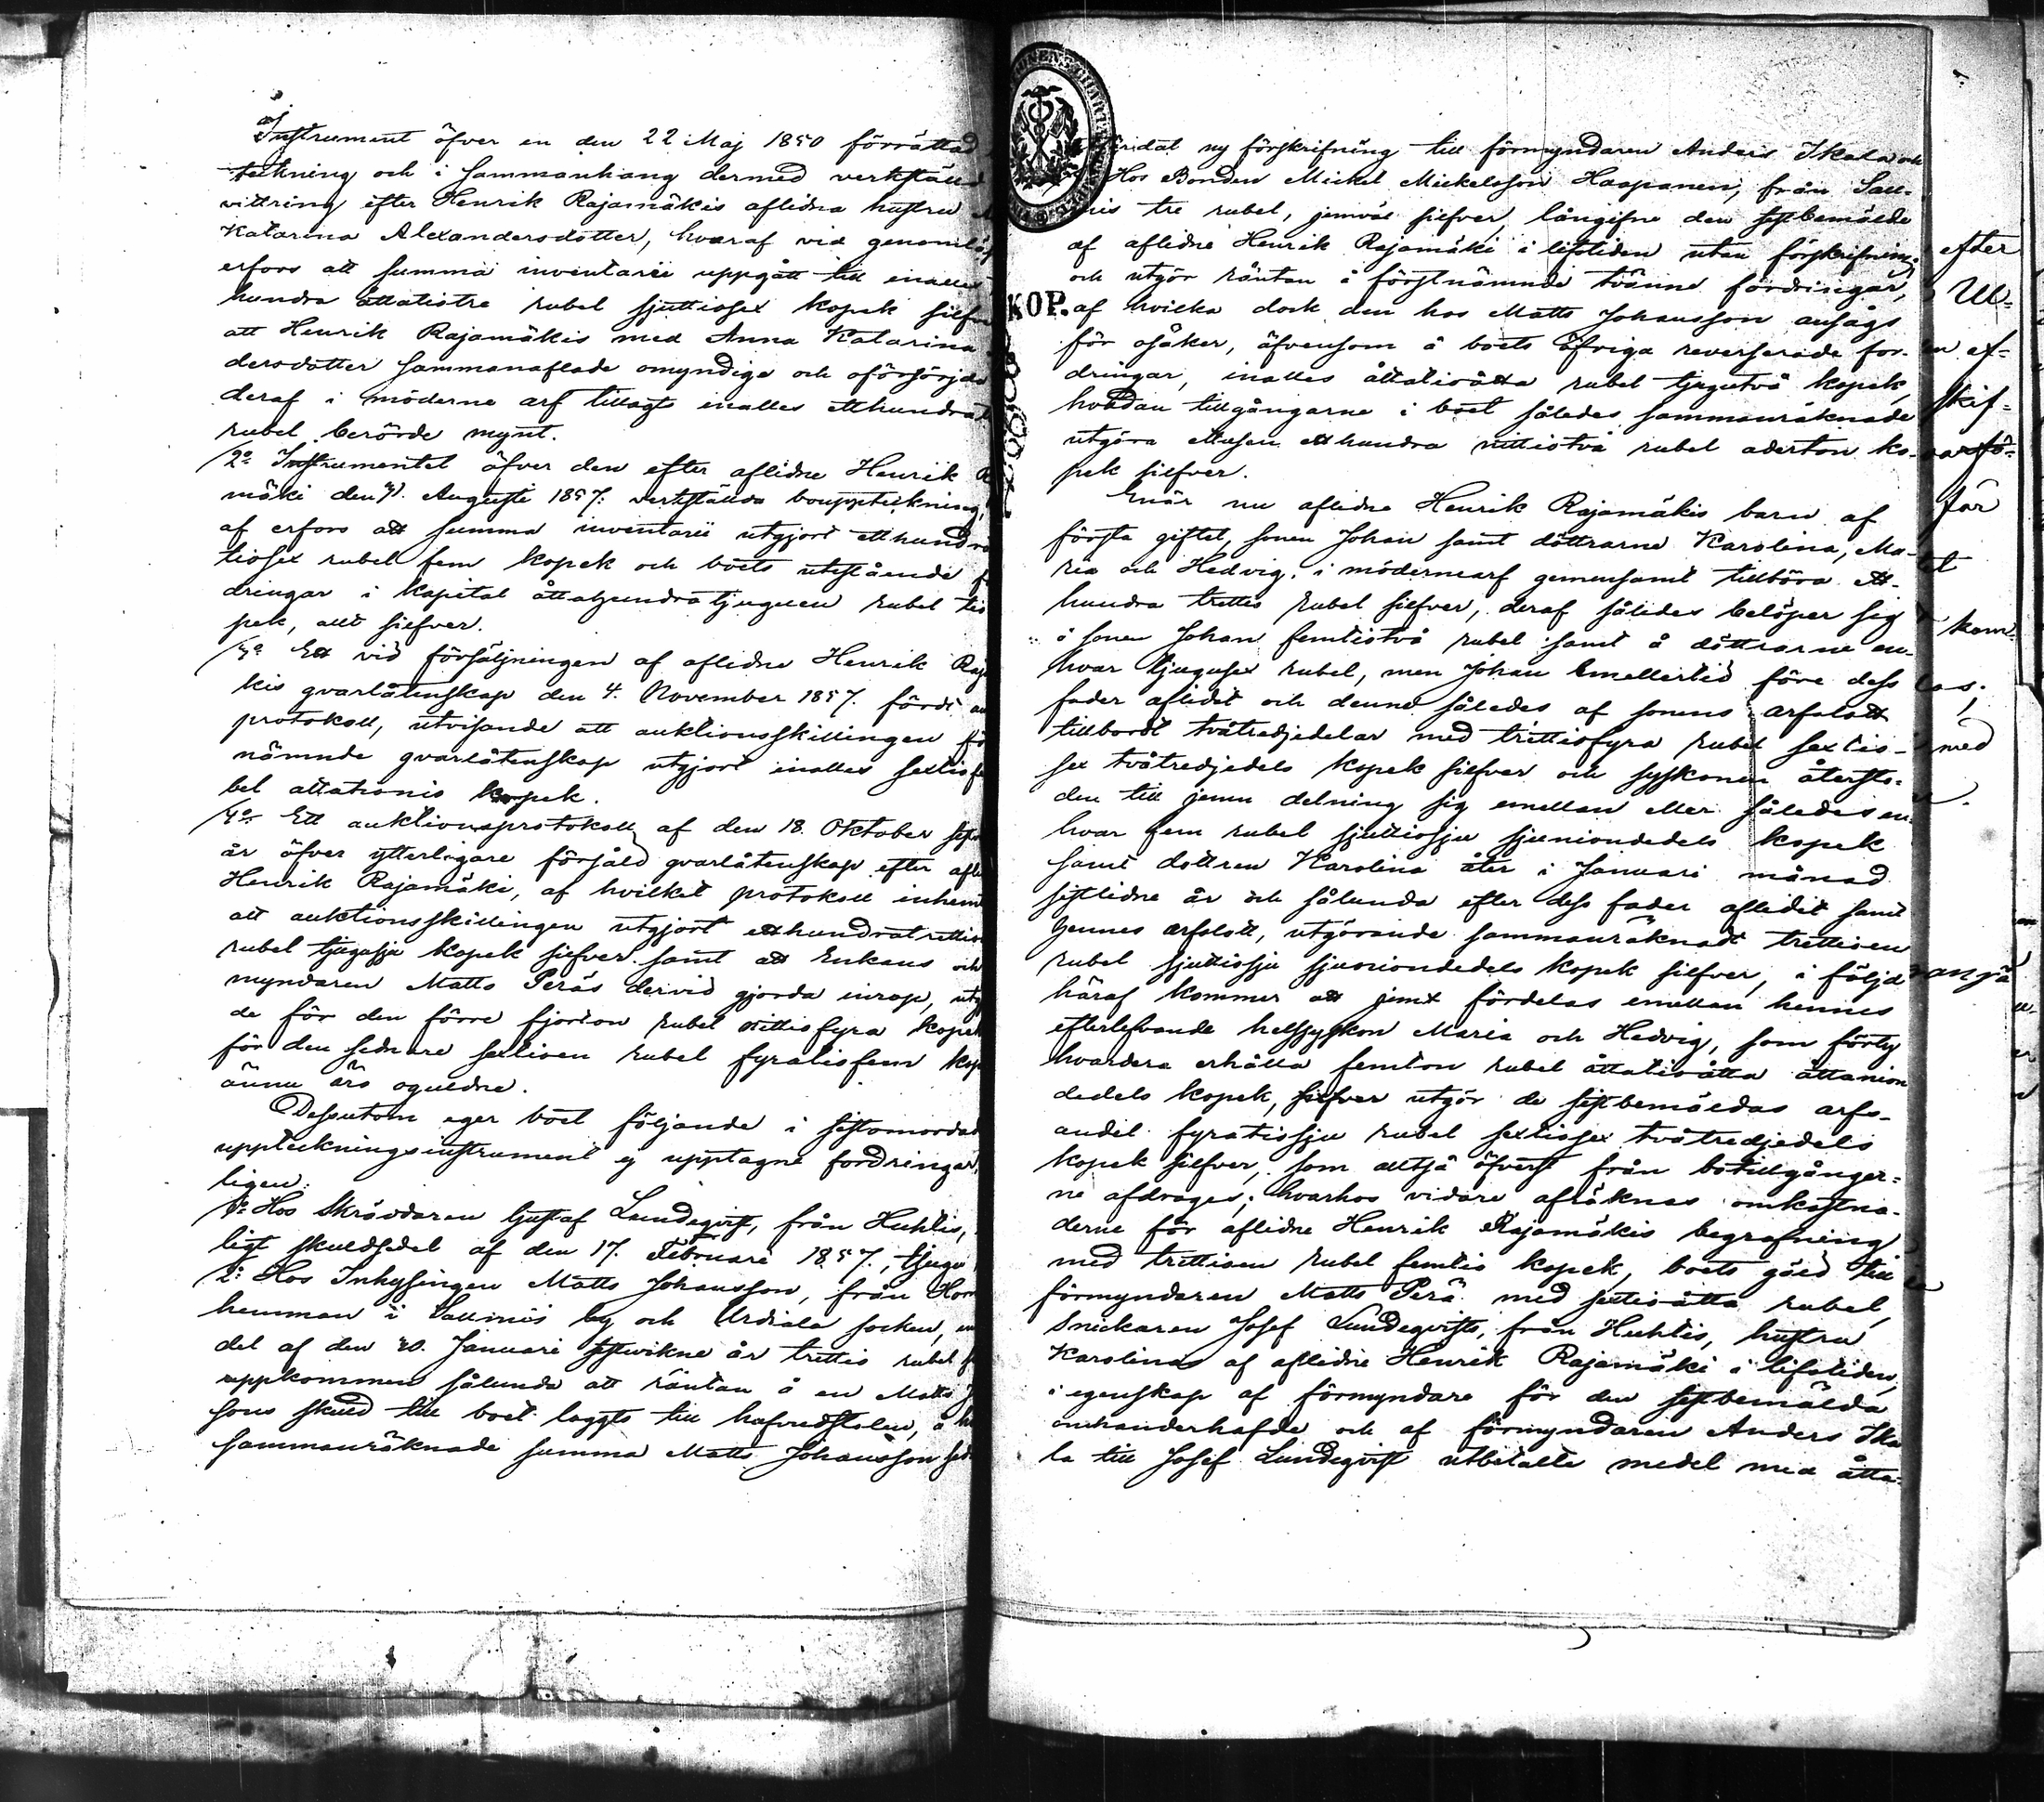 Instrument öfver en den 22 Maj 1850 förrättad
teckning och i sammanhang dermed verkställd
vittring efter Henrik Rajamäkis aflidna hustru
Katarina Alexandersdotter, hvaraf vid
erfors att summa inventarii uppgått till
hundra åttatiotre rubel sjuttiosex kopek silfver
att Henrik Rajamäkis med Anna Katarina
dersdotter sammanaflade omyndige och oförsörjde
deraf i möderne arf tillagts inalles etthundra
rubel berörde mynt.
2o Instrumentet öfver den efter aflidne Henrik
mäki den Augusti 1857. verkställda bouppteckning,
af erfors att summa inventarii utgjort etthundra
tiosex rubel fem kopek och boets utestående
dringar i kapital åttahundratjuguen rubel
pek, allt silfver.
3o Ett vid försäljningen af aflidne Henrik
kis qvarlåtenskap den 4. November 1857. fördt
protokoll, utvisande att auktionsskillingen
nämnde qvarlåtenskap utgjort inalles
bel åttationio kopek.
4o Ett auktionsprotokoll af den 18. Oktober
år öfver ytterligare försåld qvarlåtenskap efter
Henrik Rajamäki, af hvilket protokoll
att auktionsskillingen utgjort etthundratrettio
rubel tjugusju kopek silfver samt att Enkans och
myndaren Matts Peräs dervid gjorda inrop,
de för den förre fjorton rubel nittiofyra kopek
för den sednare sextioen rubel fyratiofem
ännu äro oguldne.
Dessutom eger boet följande i sistomordade
uppteckningsinstrument ej upptagne fordringar,
ligen:
1o Hos Skräddaren Gustaf Lundeqvist, från Huhtis,
ligt skuldsedel af den 17. Februari 1857., tjugu
2o Hos Inhysingen Matts Johansson, från
hemman i Salmis by och Urdiala socken,
del af den 20. Januari sistvikne år trettio rubel
uppkommen sålunda att räntan å en Matts
sons skuld till boet laggts till hufvudstolen, å
sammanräknade summa Matts Johansson
ny förskrifning till förmyndaren Anders Ikala och
Hos Bonden Mickel Mickelsson Haapanen, från
mis tre rubel, jemväl silfver, långifne den sistbemälde
af aflidne Henrik Rajamäki i lifstiden utan förskrifning
och utgör räntan å förstnämnde tvänne fordringar,
KOP. af hvilka dock den hos Matts Johansson ansågs
för osäker, äfvensom å boets öfriga reverserade for-
dringar, inalles åttatioåtta rubel tjugutvå kopek,
hvadan tillgångarne i boet således sammanräknade
utgöra ettusen etthundra nittiotvå rubel aderton ko-
pek silfver.
Enär nu aflidne Henrik Rajamäkis barn af
första giftet, sonen Johan samt döttrarne Karolina, Ma-
ria och Hedvig, i mödernearf gemensamt tillböra ett-
hundra trettio rubel silfver, deraf således belöper sig
å sonen Johan femtiotvå rubel samt å döttrarne en-
hvar tjugusex rubel, men Johan emellertid före dess
fader aflidit och denne således af sonens arfslott
tillbordt tvåtredjedelar med trettiofyra rubel sextio-
sex tvåtredjedels kopek silfver och syskonen återsto-
den till jemn delning sig emellan eller således en-
hvar fem rubel sjuttiosju sjuniondedels kopek
samt dottren Karolina åter i Januari månad
sistlidne år och sålunda efter dess fader aflidit samt
hennes arfslott, utgörande sammanräknadt trettioen
rubel sjuttiosju sjuniondedels kopek silfver, i följd
häraf kommer att jemt fördelas emellan hennes
efterlefvande helsyskon Maria och Hedvig, som förty
hvardera erhålla femton rubel åttatioåtta åttanion
dedels kopek, silfver utgör de sistbemäldas arfs-
andel fyratiosju rubel sextiosex tvåtredjedels
kopek silfver, som alltså öfverst från botillgånger-
ne afdrages; hvarhos vidare afräknas omkostna-
derne för aflidne Henrik Rajamäkis begrafning
med trettioen rubel femtio kopek, boets gäld till
förmyndaren Matts Perä med sextioåtta rubel,
Snickaren Josef Lundeqvists, från Huhtis, hustru
Karolinas af aflidne Henrik Rajamäki i lifstiden,
i egenskap af förmyndare för den sistbemälda
omhanderhafde och af förmyndaren Anders Ika
la till Josef Lundeqvist utbetalte medel med åtta-
efter
för
kom-
med